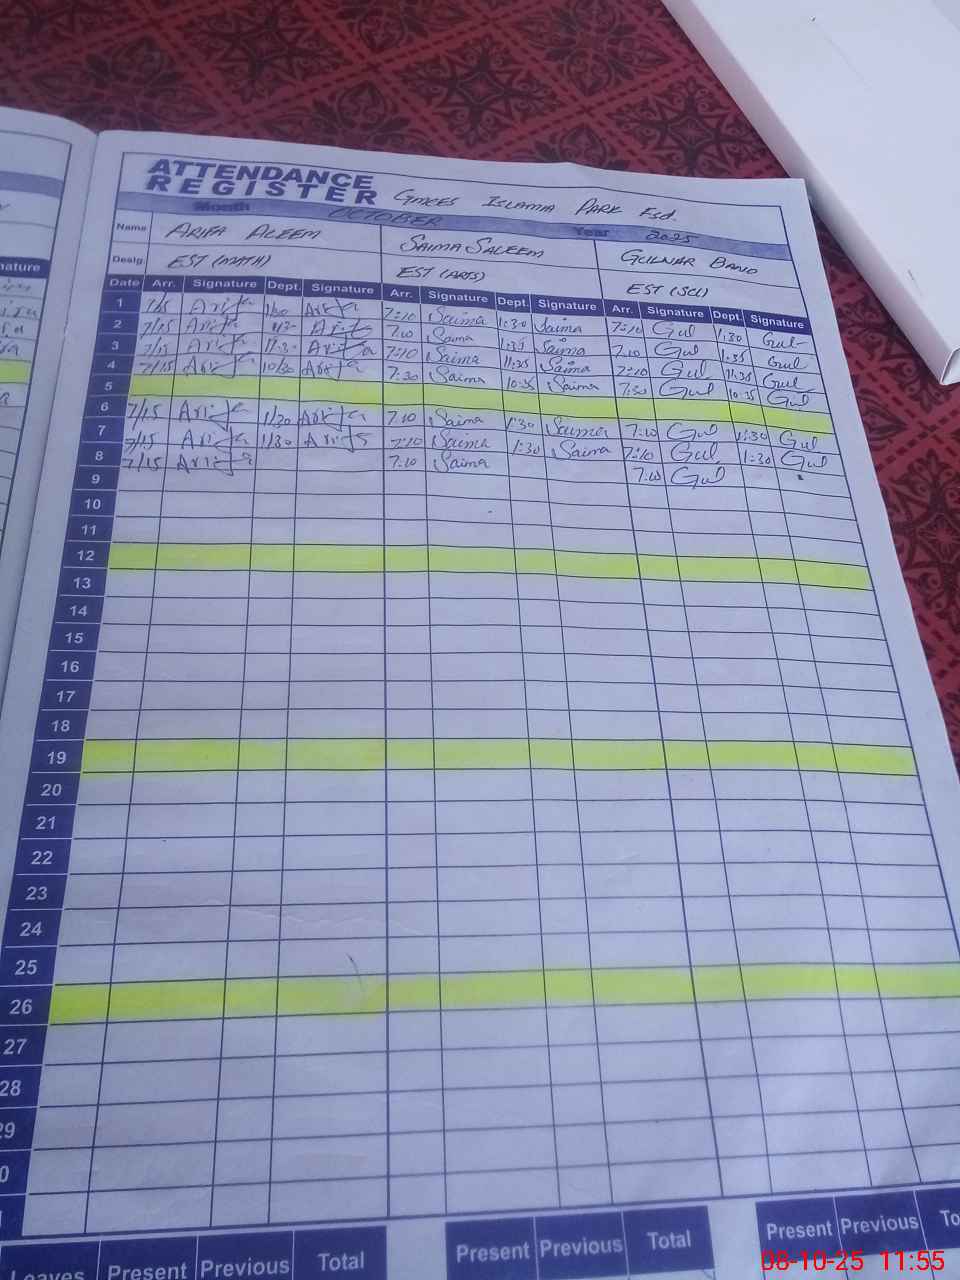 ATTENDANCE
REGISTER GMCES ISLAMIA PARK Fsd.
Month OCTOBER Year 2025
Name ARIFA ALEEM SAIMA SALEEM GULNAR BANO
Desig. EST (MATH) EST (ARTS) EST (SCI)
Date Arr. Signature Dept. Signature Arr. Signature Dept. Signature Arr. Signature Dept. Signature
1 7/15 Arifa 1/30 Arifa 7:10 Saima 1:30 Saima 7:10 Gul 1:30 Gul
2 7/15 Arifa Arifa 7:10 Saima 1:35 Saima 7:10 Gul 1:35 Gul
3 7/15 Arifa 11/30 Arifa 7:10 Saima 11:35 Saima 7:10 Gul 11:35 Gul
4 7/15 Arifa 10/30 Arifa 7:30 Saima 10:35 Saima 7:30 Gul 10:35 Gul
5
6 7/15 Arifa 1/30 Arifa 7:10 Saima 1:30 Saima 7:10 Gul 1:30 Gul
7 7/15 Arifa 1/30 Arifa 7:10 Saima 1:30 Saima 7:10 Gul 1:30 Gul
8 7/15 Arifa 7:10 Saima 7:10 Gul
9
10
11
12
13
14
15
16
17
18
19
20
21
22
23
24
25
26
27
28
29
0
Leaves Present Previous Total Present Previous Total Present Previous To
08-10-25 11:55